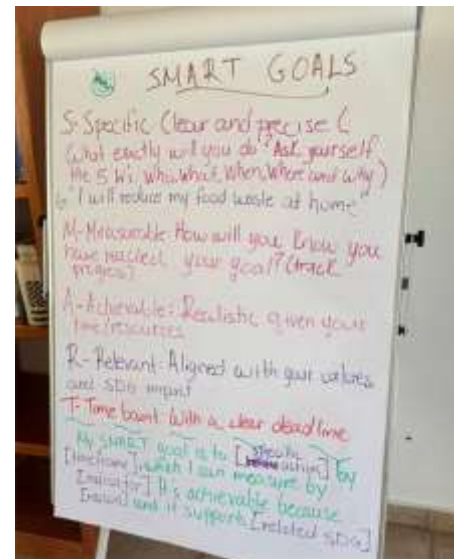 SMART GOALS
S-Specific Clear and precise (
(What exactly will you do? Ask yourself
the 5 W's: who, what, when, where and why)
"I will reduce my food waste at home"
M-Measurable: How will you know you
have reached your goal? (track
progress)
A-Achievable: Realistic given your
time/resources
R-Relevant: Aligned with your values
and SDG impact
T-Time bount With a clear deadline
My SMART goal is to [specific action] by
[timeframe], which I can measure by
[indicator] It's achievable because
[reason] and it supports [related SDG]